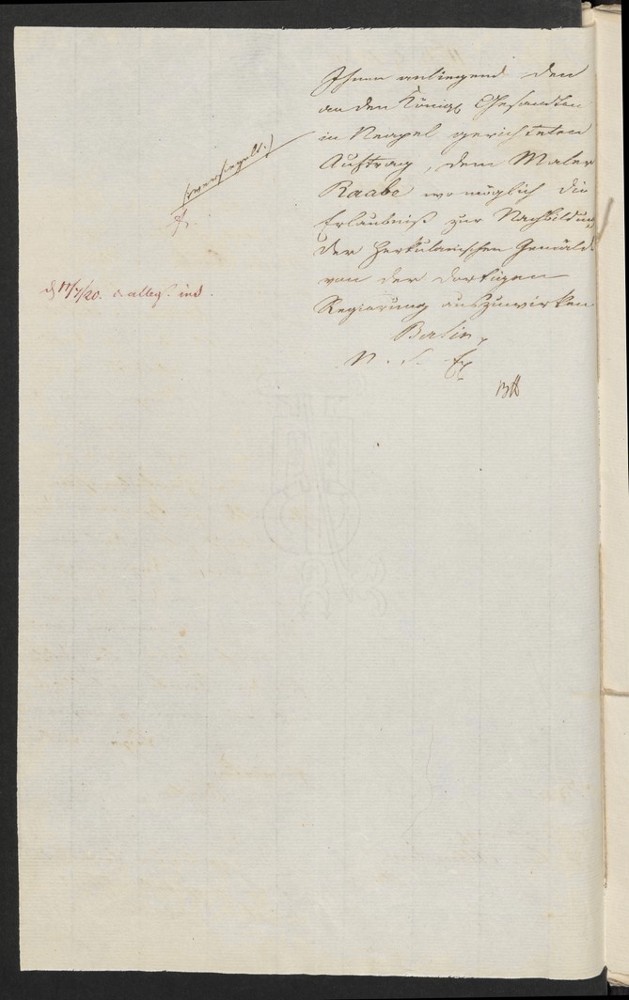 Ihnen anliegend den
an den Königl. Gesandten
in Neapel gerichteten
Auftrag, dem Maler
Raabe wo möglich die
Erlaubniß zur Nachbildung
der Herkulanischen Gemälde
von der dortigen
Regierung auszuwirken.
Berlin,
N. S. Ex
(versiegelt.)
17/7/20. ind.